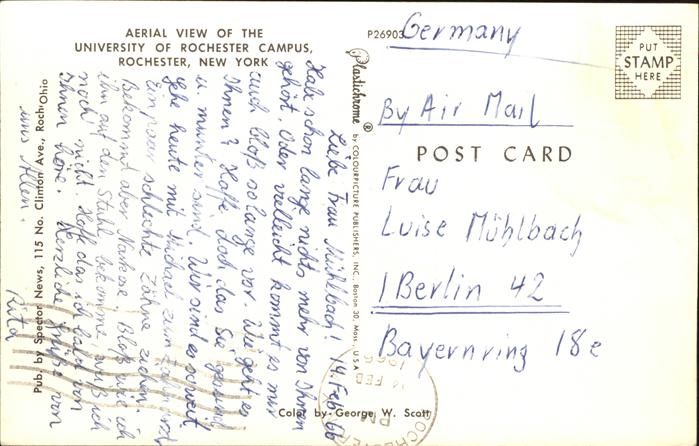 AERIAL VIEW OF THE
UNIVERSITY OF ROCHESTER CAMPUS,
ROCHESTER, NEW YORK
P26903
Germany
PUT
STAMP
HERE
By Air Mail
POST CARD
Frau
Luise Mühlbach
1 Berlin 42
Bayernring 18e
Plastichrome ® by COLOURPICTURE PUBLISHERS, INC. Boston 30, Mass., U.S.A.
14. Feb 66
Liebe Frau Mühlbach!
Habe schon lange nichts mehr von Ihnen
gehört. Oder vielleicht kommt es mir
auch bloß so lange vor. Wie geht es
Ihnen? Hoffe doch das Sie gesund
u. munter sind. Wir sind es soweit.
Gehe heute mit Michael zum Zahnarzt
Ein paar schlechte Zähne ziehen.
Bekommt aber Narkose. Bloß wie ich
ihn auf den Stuhl bekomme weiß ich
noch nicht. Hoffe das ich bald von
Ihnen höre. Herzliche Grüße von
uns Allen.
Rita
Pub. by Spector News, 115 No. Clinton Ave., Roch Ohio
Color by George W. Scott
ROCHESTER
PM
14 FEB
1966